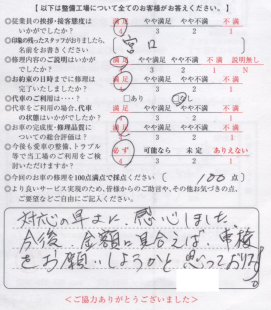 【以下は整備工場について全てのお客様がお答えください。】
◎従業員の挨拶・接客態度は 満足 やや満足 やや不満 不満
いかがでしたか? 4 3 2 1
◎印象の残ったスタッフがおりましたら、
名前をお書きください (宮口)
◎修理内容のご説明はいかが 満足 やや満足 やや不満 不満 説明無し
でしたか? 4 3 2 1 N
◎お約束の日時までに修理は 満足 やや満足 やや不満 不満
完了いたしましたか? 4 3 2 1
◎代車のご利用は・・・? □あり □なし
◎代車をご利用の場合、代車 満足 やや満足 やや不満 不満
の状態はいかがでしたか? 4 3 2 1
◎お車の完成度・修理品質に 満足 やや満足 やや不満 不満
ついての総合評価は? 4 3 2 1
◎今後も愛車の整備、トラブル 必ず 可能なら 未定 ありえない
等で当工場のご利用をご検 4 3 2 1
討いただけますか?
◎今回のお車の修理を100点満点で採点ください (100点)
◎より良いサービス実現のため、皆様からのご助言や、その他お気づきの点、
ご要望などご自由にご記入ください。
対応の早さに、感心しました
今後、金額に見合えば、車検
をお願いしようかと思っております。
<ご協力ありがとうございました>